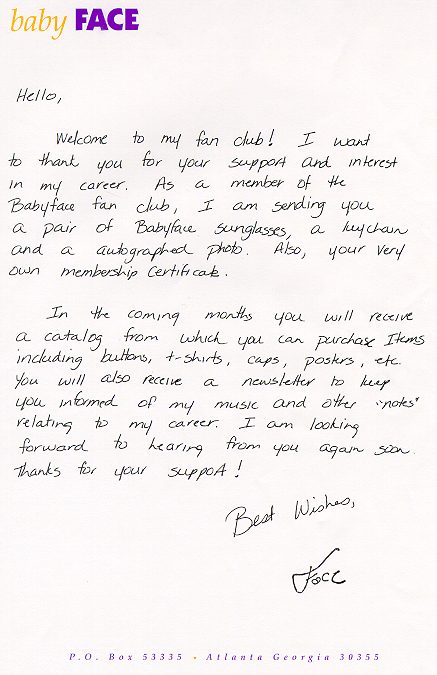 baby FACE
Hello,
Welcome to my fan club! I want
to thank you for your support and interest
in my career. As a member of the
Babyface fan club, I am sending you
a pair of Babyface sunglasses, a keychain
and a autographed photo. Also, your very
own membership certificate.
In the coming months you will receive
a catalog from which you can purchase Items
including buttons, t-shirts, caps, posters, etc.
You will also receive a newsletter to keep
you informed of my music and other "notes"
relating to my career. I am looking
forward to hearing from you again soon.
Thanks for your support!
Best Wishes,
Face
P.O. Box 53335 • Atlanta Georgia 30355